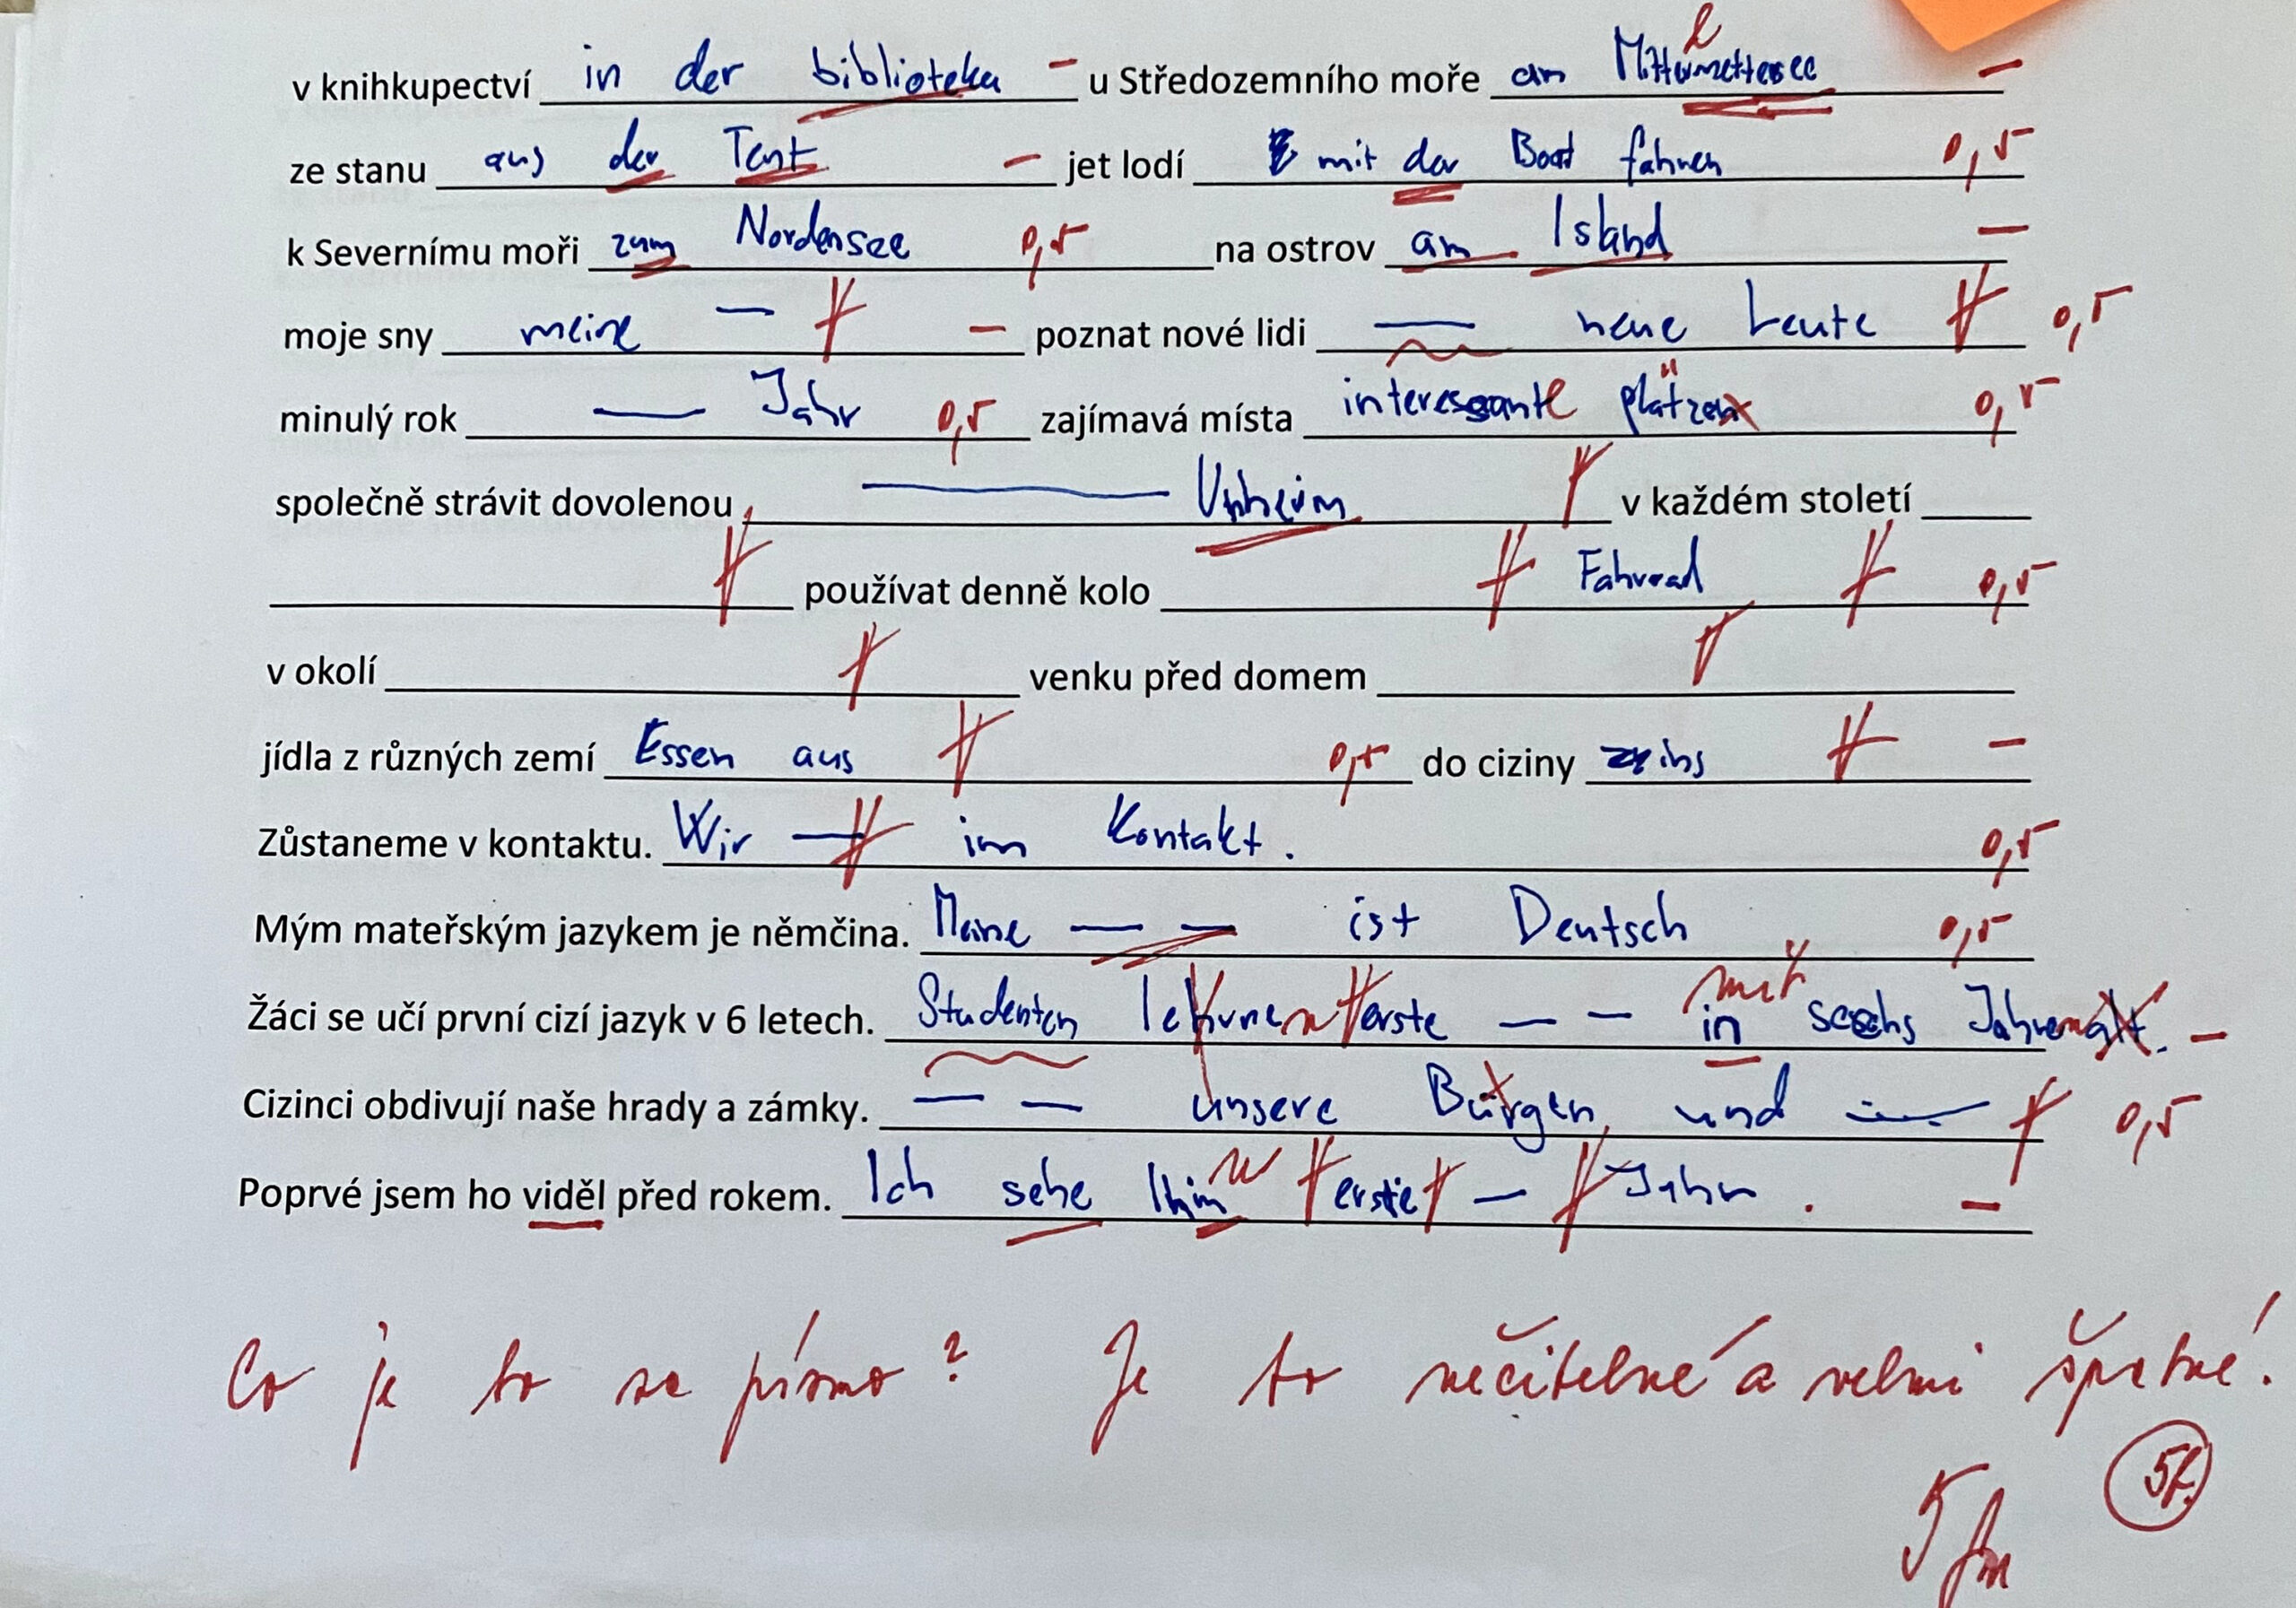 v knihkupectví in der biblioteku – u Středozemního moře an –
ze stanu aus der Tent – jet lodí mit der Boot fahren 0,5
k Severnímu moři zum Nordensee 0,5 na ostrov am Island –
moje sny meine — – poznat nové lidi — neue Leute 0,5
minulý rok — Jahr 0,5 zajímavá místa interessante plätzen 0,5
společně strávit dovolenou — v každém století
používat denně kolo Fahrrad 0,5
v okolí venku před domem
jídla z různých zemí Essen aus 0,5 do ciziny ins –
Zůstaneme v kontaktu. Wir — im Kontakt. 0,5
Mým mateřským jazykem je němčina. Meine — — ist Deutsch 0,5
mit
Žáci se učí první cizí jazyk v 6 letech. Studenten erste — — in sechs –
Cizinci obdivují naše hrady a zámky. — — unsere Bürgen und — 0,5
Poprvé jsem ho viděl před rokem. Ich sehe Ihn erste — Jahr . –
Co je to za písmo? Je to nečitelné a velmi špatné!
5